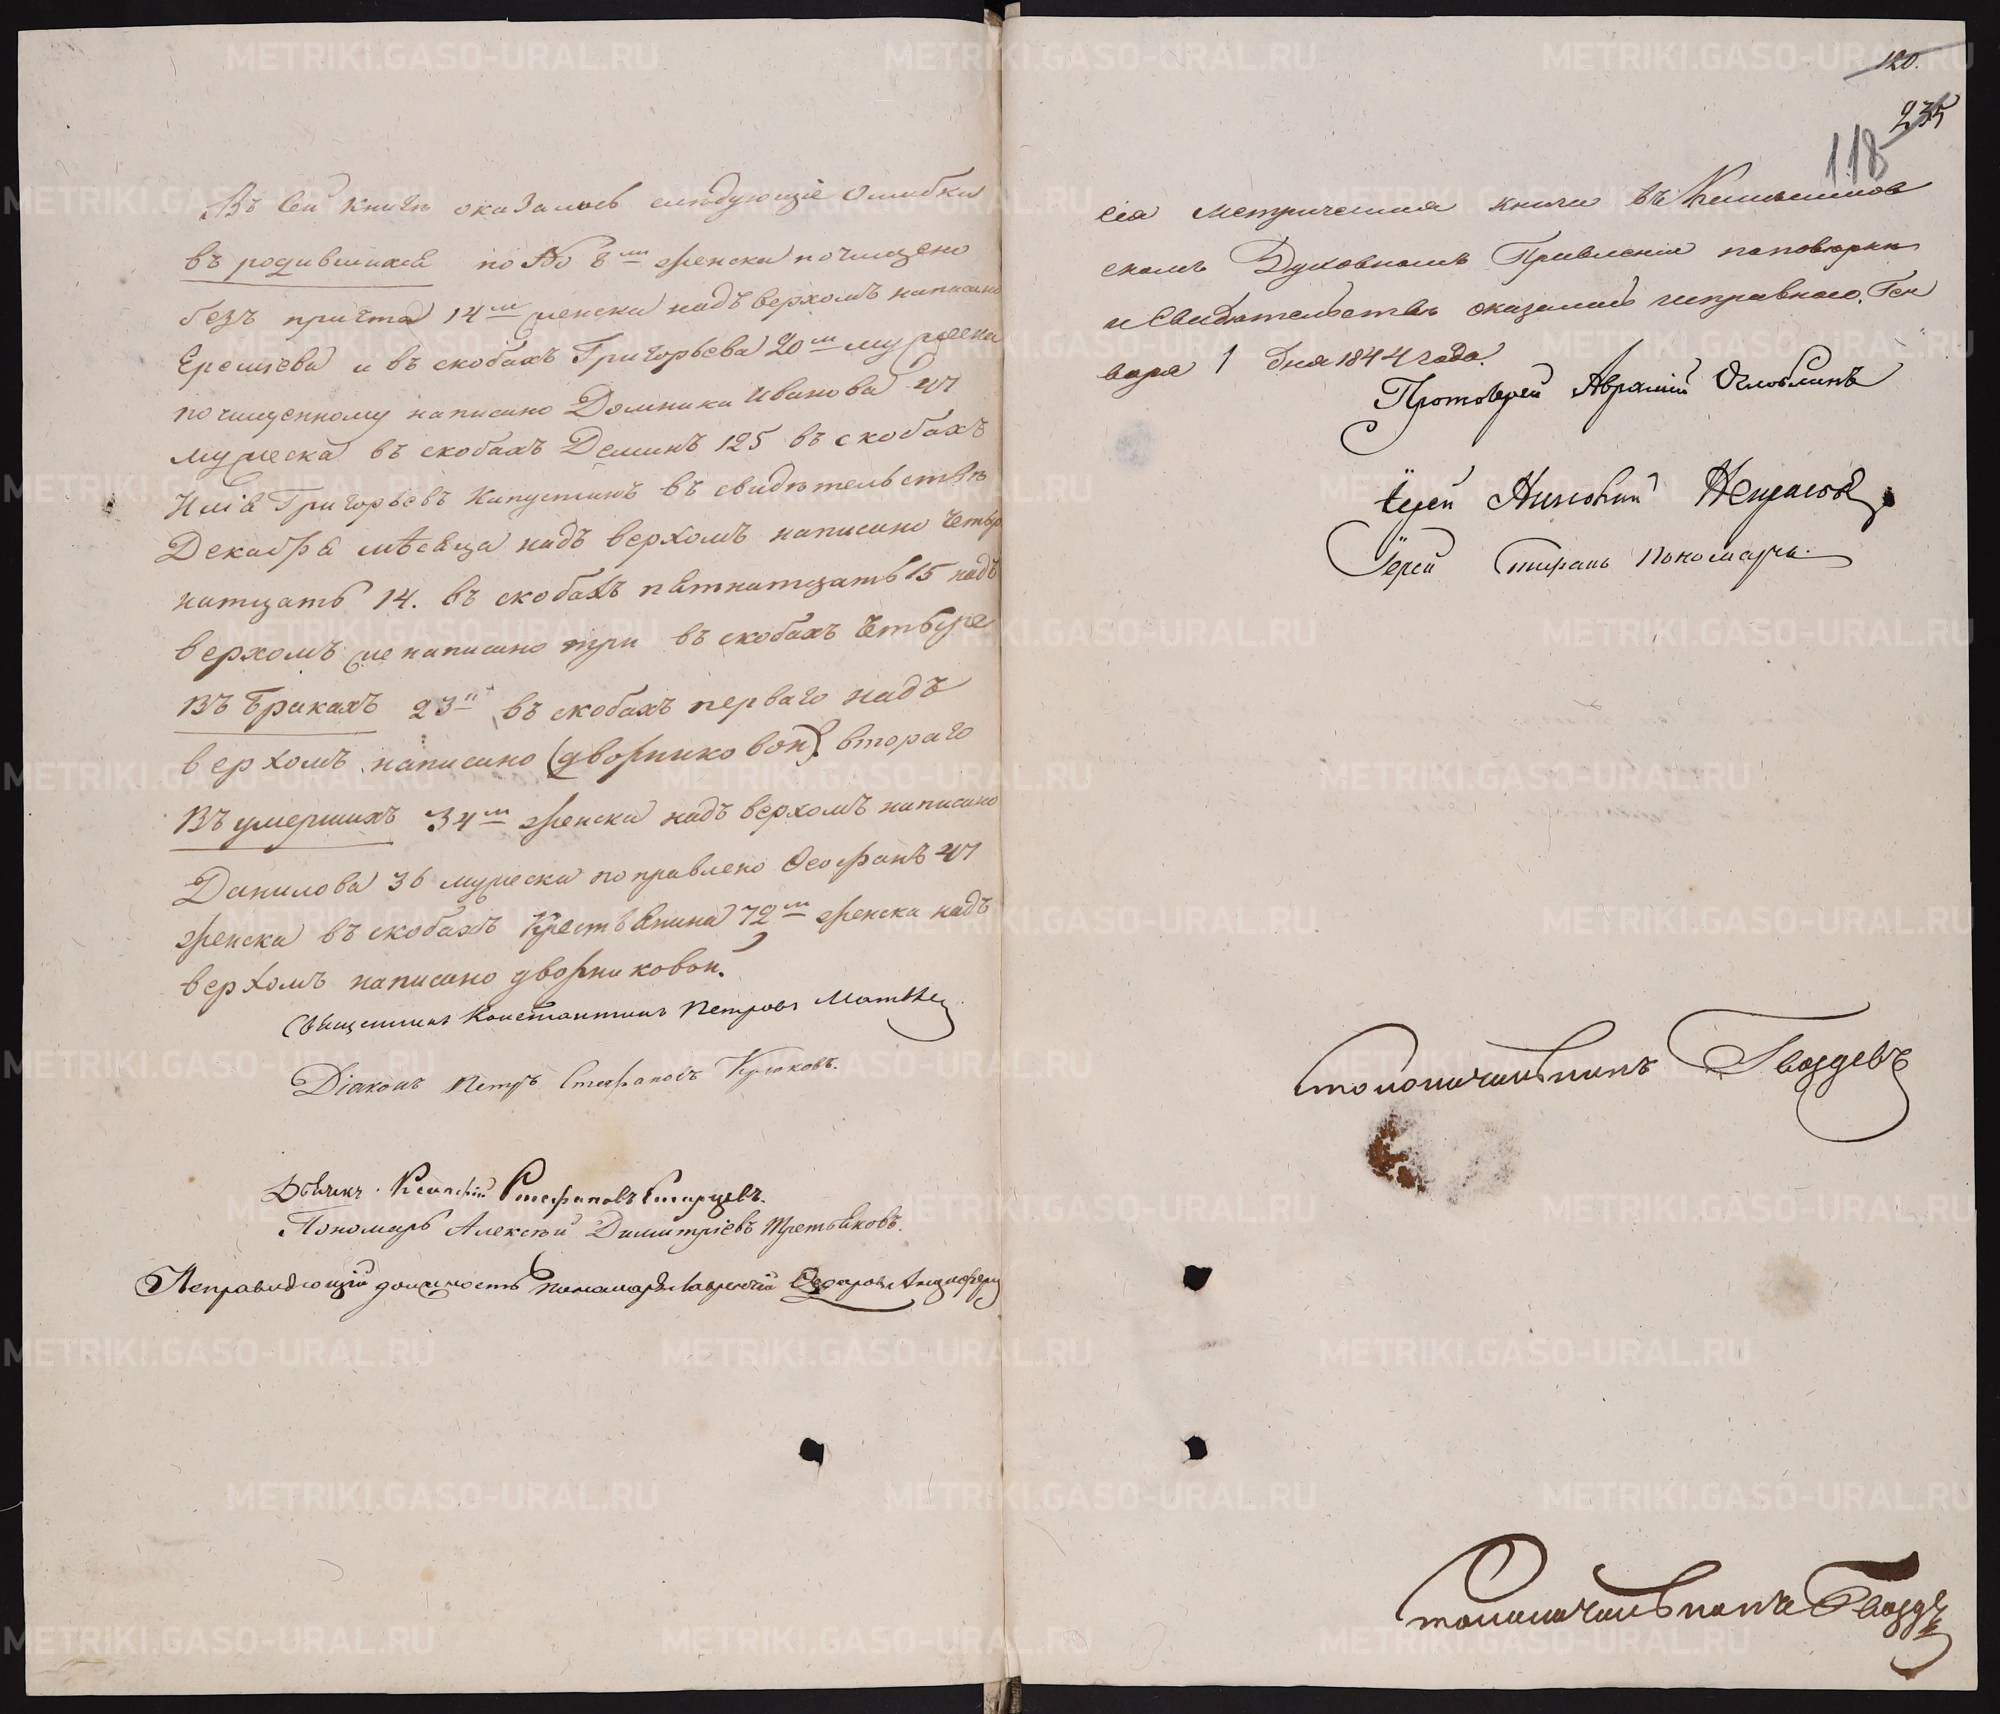 Въ сей книгѣ оказалось слѣдующіе ошибки
въ родившихся по № 8м женска почищено
безъ причта 14м женска надъ верхомъ написано
Еремѣева и въ скобахъ Григорьева 20м мужеска
почищенному написано Домника Иванова 47
мужеска въ скобахъ Деминъ 125 въ скобахъ
Илія Григорьевъ Капустинъ въ свидѣтельствѣ
Декабря мѣсяца надъ верхомъ написано четыр
натцать 14. въ скобахъ пятнатцать 15 надъ
верхомъ же написано три въ скобахъ четыре
въ бракахъ 23й въ скобахъ перваго надъ
верхомъ написано (дворниковой) втораго
Въ умершихъ 34м женска надъ верхомъ написано
Данилова 36 мужеска поправлено Ѳеофанъ 47
женска въ скобахъ крестьянина 72м женска надъ
верхомъ написано дворниковой.
Священникъ Константинъ Петровъ
Діаконъ Петръ Стефановъ Крюковъ.
Дьячекъ Стефановъ Старцевъ.
Пономарь Алексѣй Димитріевъ Третьяковъ.
Исправляющій должность пономаря Лаврентій
120.
235
118
сія метрическая книга въ Камышлов
скомъ Духовномъ Правленіи по повѣркѣ
и свидѣтельствѣ оказалась исправною. Ген
варя 1 дня 1844 года.
Протоіерей Авраамій Оглоблинъ
Іерей Некрасовъ
Іерей Стефанъ Пономаревъ.
Столоначальникъ Гвоздевъ
Столоначальникъ Гвоздевъ
METRIKI.GASO-URAL.RU